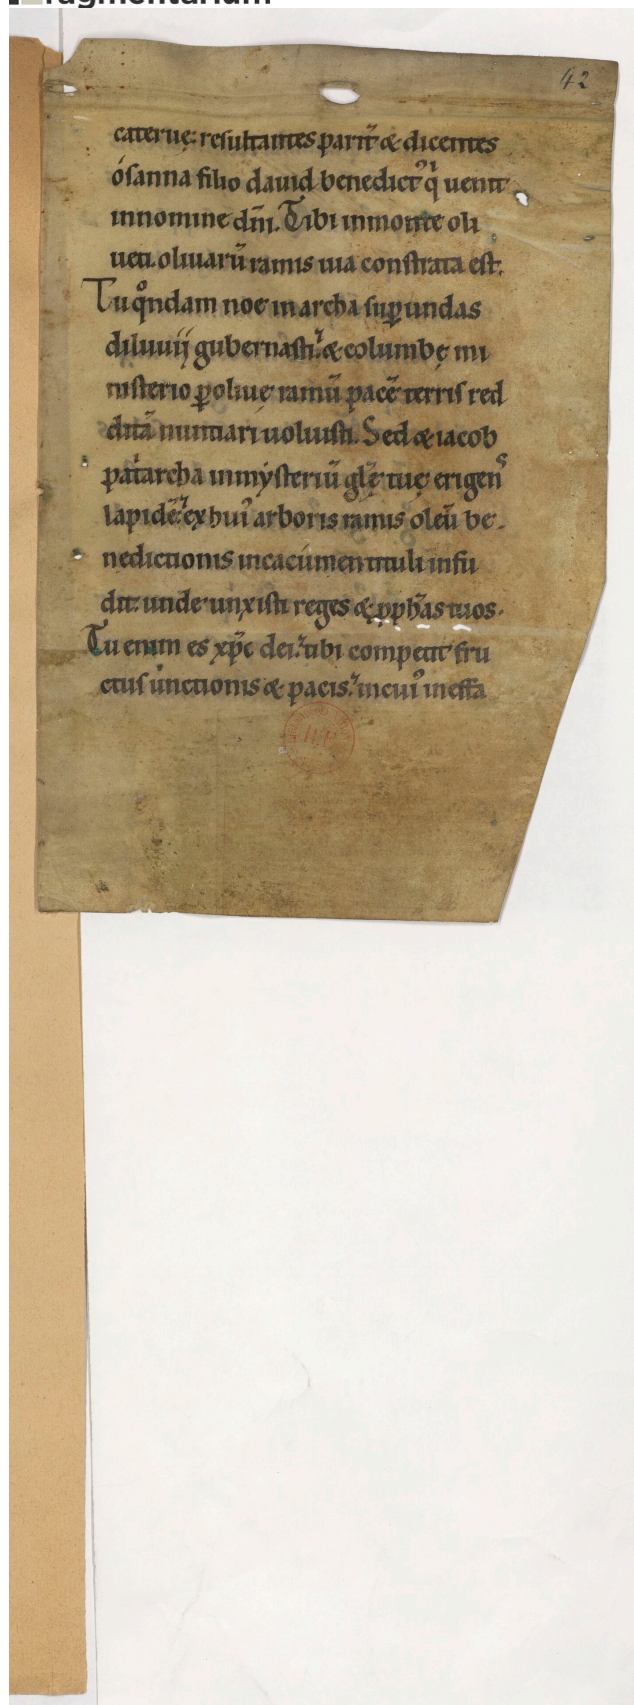 fragmentarium
42
cateruę: resultantes parit̄ & dicentes
ósanna filio dauid benedict᾿ qͥ uenit
innomine dn̄i. Tibi inmonte oli
ueti. oliuarū ramis uia constrata est.
Tu qͦndam noe in archa suꝑ undas
diluuij gubernasti. & columbę mi
nisterio ꝑ oliuę ramū pacē terris red
ditā nuntiari uoluisti. Sed & iacob
pat͛archa in mẏsteriū gl̄ę tuę erigenˢ
lapidē. ex hui᾿ arboris ramis oleū be-
nedictionis incacumen tituli infu
dit: unde unxisti reges & ꝓph̄as tuos.
Tu enim es xp̄c dei. tibi competit fru
ctus unctionis & pacis. incui᾿ ineffa